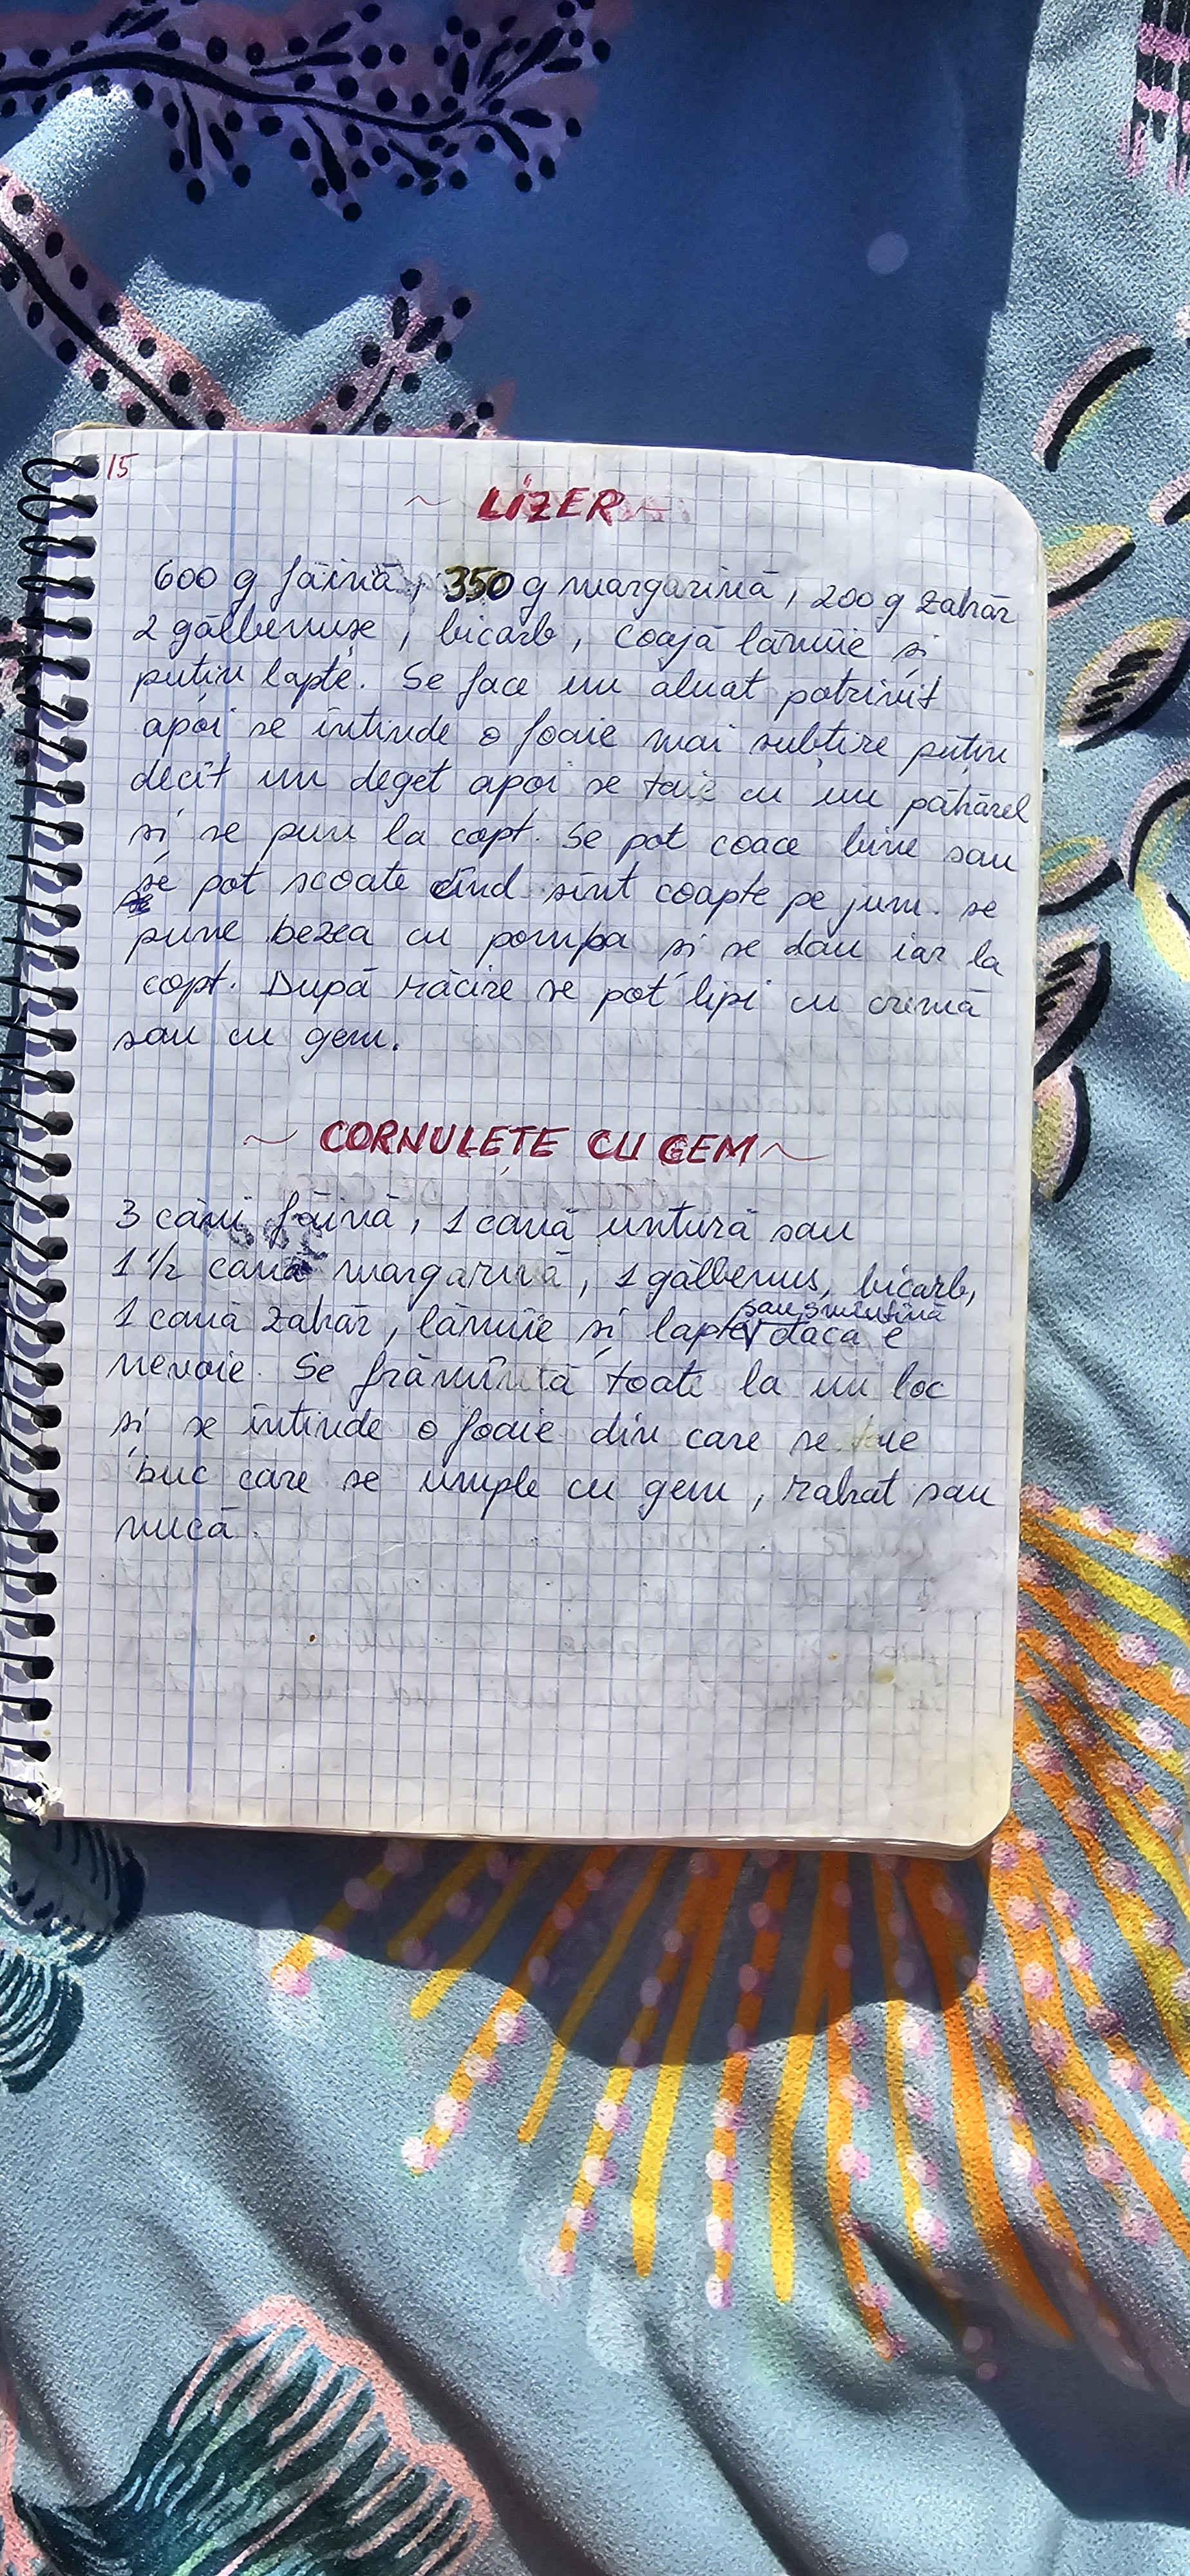 15
~ LIZER ~
600 g făină, 350 g margarină, 200 g zahăr
2 gălbenușe, bicarb, coajă lămîie și
puțin lapte. Se face un aluat potrivit
apoi se întinde o foaie mai subțire puțin
decît un deget apoi se taie cu un păhărel
și se pun la copt. Se pot coace bine sau
se pot scoate cînd sînt coapte pe jum. se
pune bezea cu pompa și se dau iar la
copt. După răcire se pot lipi cu cremă
sau cu gem.
~ CORNULEȚE CU GEM ~
3 căni făină, 1 cană untură sau
1 1/2 cană margarină, 1 gălbenuș, bicarb,
sau smîntînă
1 cană zahăr, lămîie și lapte V dacă e
nevoie. Se frămîntă toate la un loc
și se întinde o foaie din care se taie
buc care se umple cu gem, rahat sau
nucă.